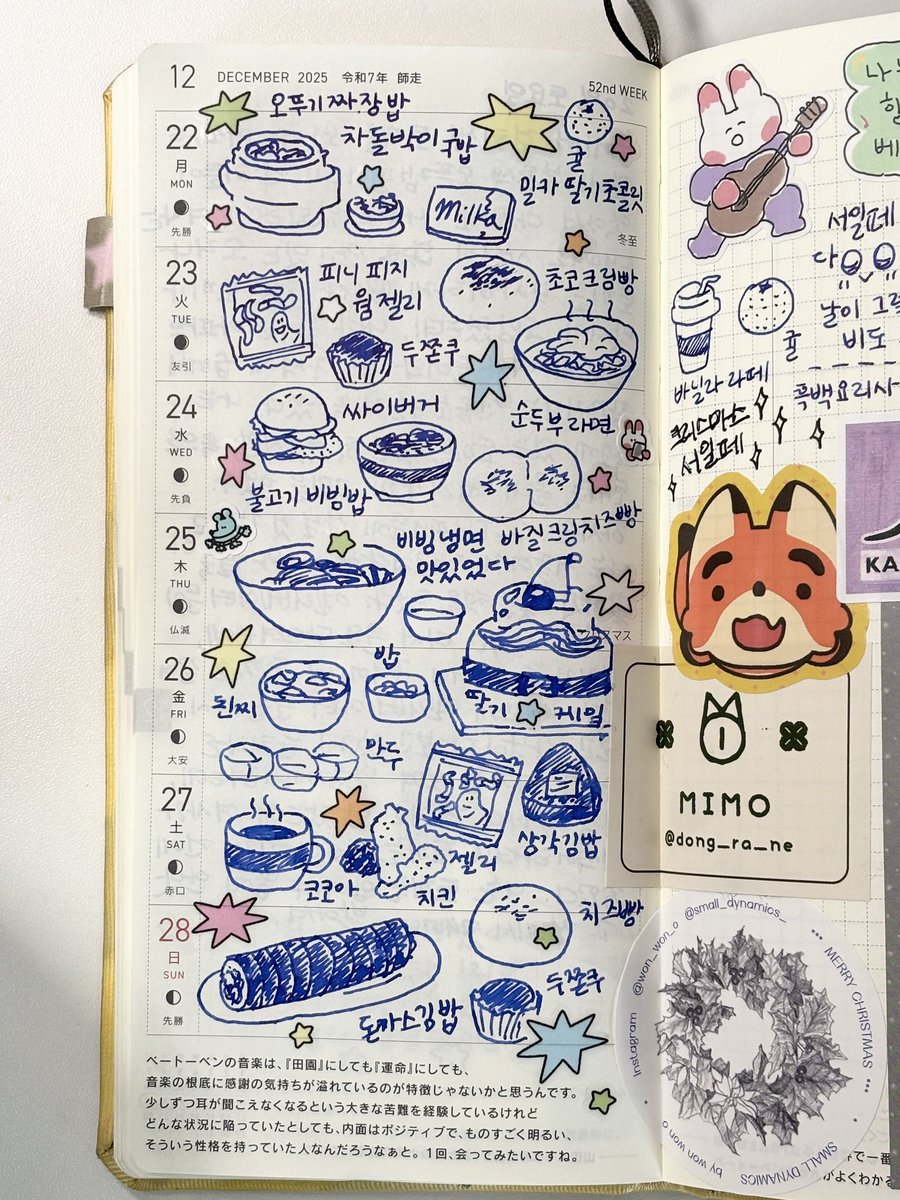 12 DECEMBER 2025 令和7年 師走
52nd WEEK
22
月
MON
先勝
오뚜기 짜장밥
차돌박이 국밥
귤
밀카 딸기 초콜릿
Milka
冬至
23
火
TUE
友引
피니 피지
웜 젤리
초코크림빵
두쫀쿠
순두부라면
24
水
WED
先負
싸이버거
불고기 비빔밥
바질크림치즈빵
25
木
THU
仏滅
비빔냉면
맛있었다
クリスマス
딸기 케잌
26
金
FRI
大安
밥
된찌
만두
27
土
SAT
赤口
젤리
삼각김밥
코코아
치킨
28
日
SUN
先勝
치즈빵
두쫀쿠
돈까스김밥
ベートーベンの音楽は、『田園』にしても『運命』にしても、
音楽の根底に感謝の気持ちが溢れているのが特徴じゃないかと思うんです。
少しずつ耳が聞こえなくなるという大きな苦難を経験しているけれど
どんな状況に陥っていたとしても、内面はポジティブで、ものすごく明るい、
そういう性格を持っていた人なんだろうなぁと。1回、会ってみたいですね。
서일페
다
날이 그
비도
귤
바닐라 라떼
흑백요리사
크리스마스
서일페
KA
MIMO
@dong_ra_ne
Instagram @won_won_o @small_dynamics_ MERRY CHRISTMAS
SMALL DYNAMICS by won won o
で一番
がよくわかる